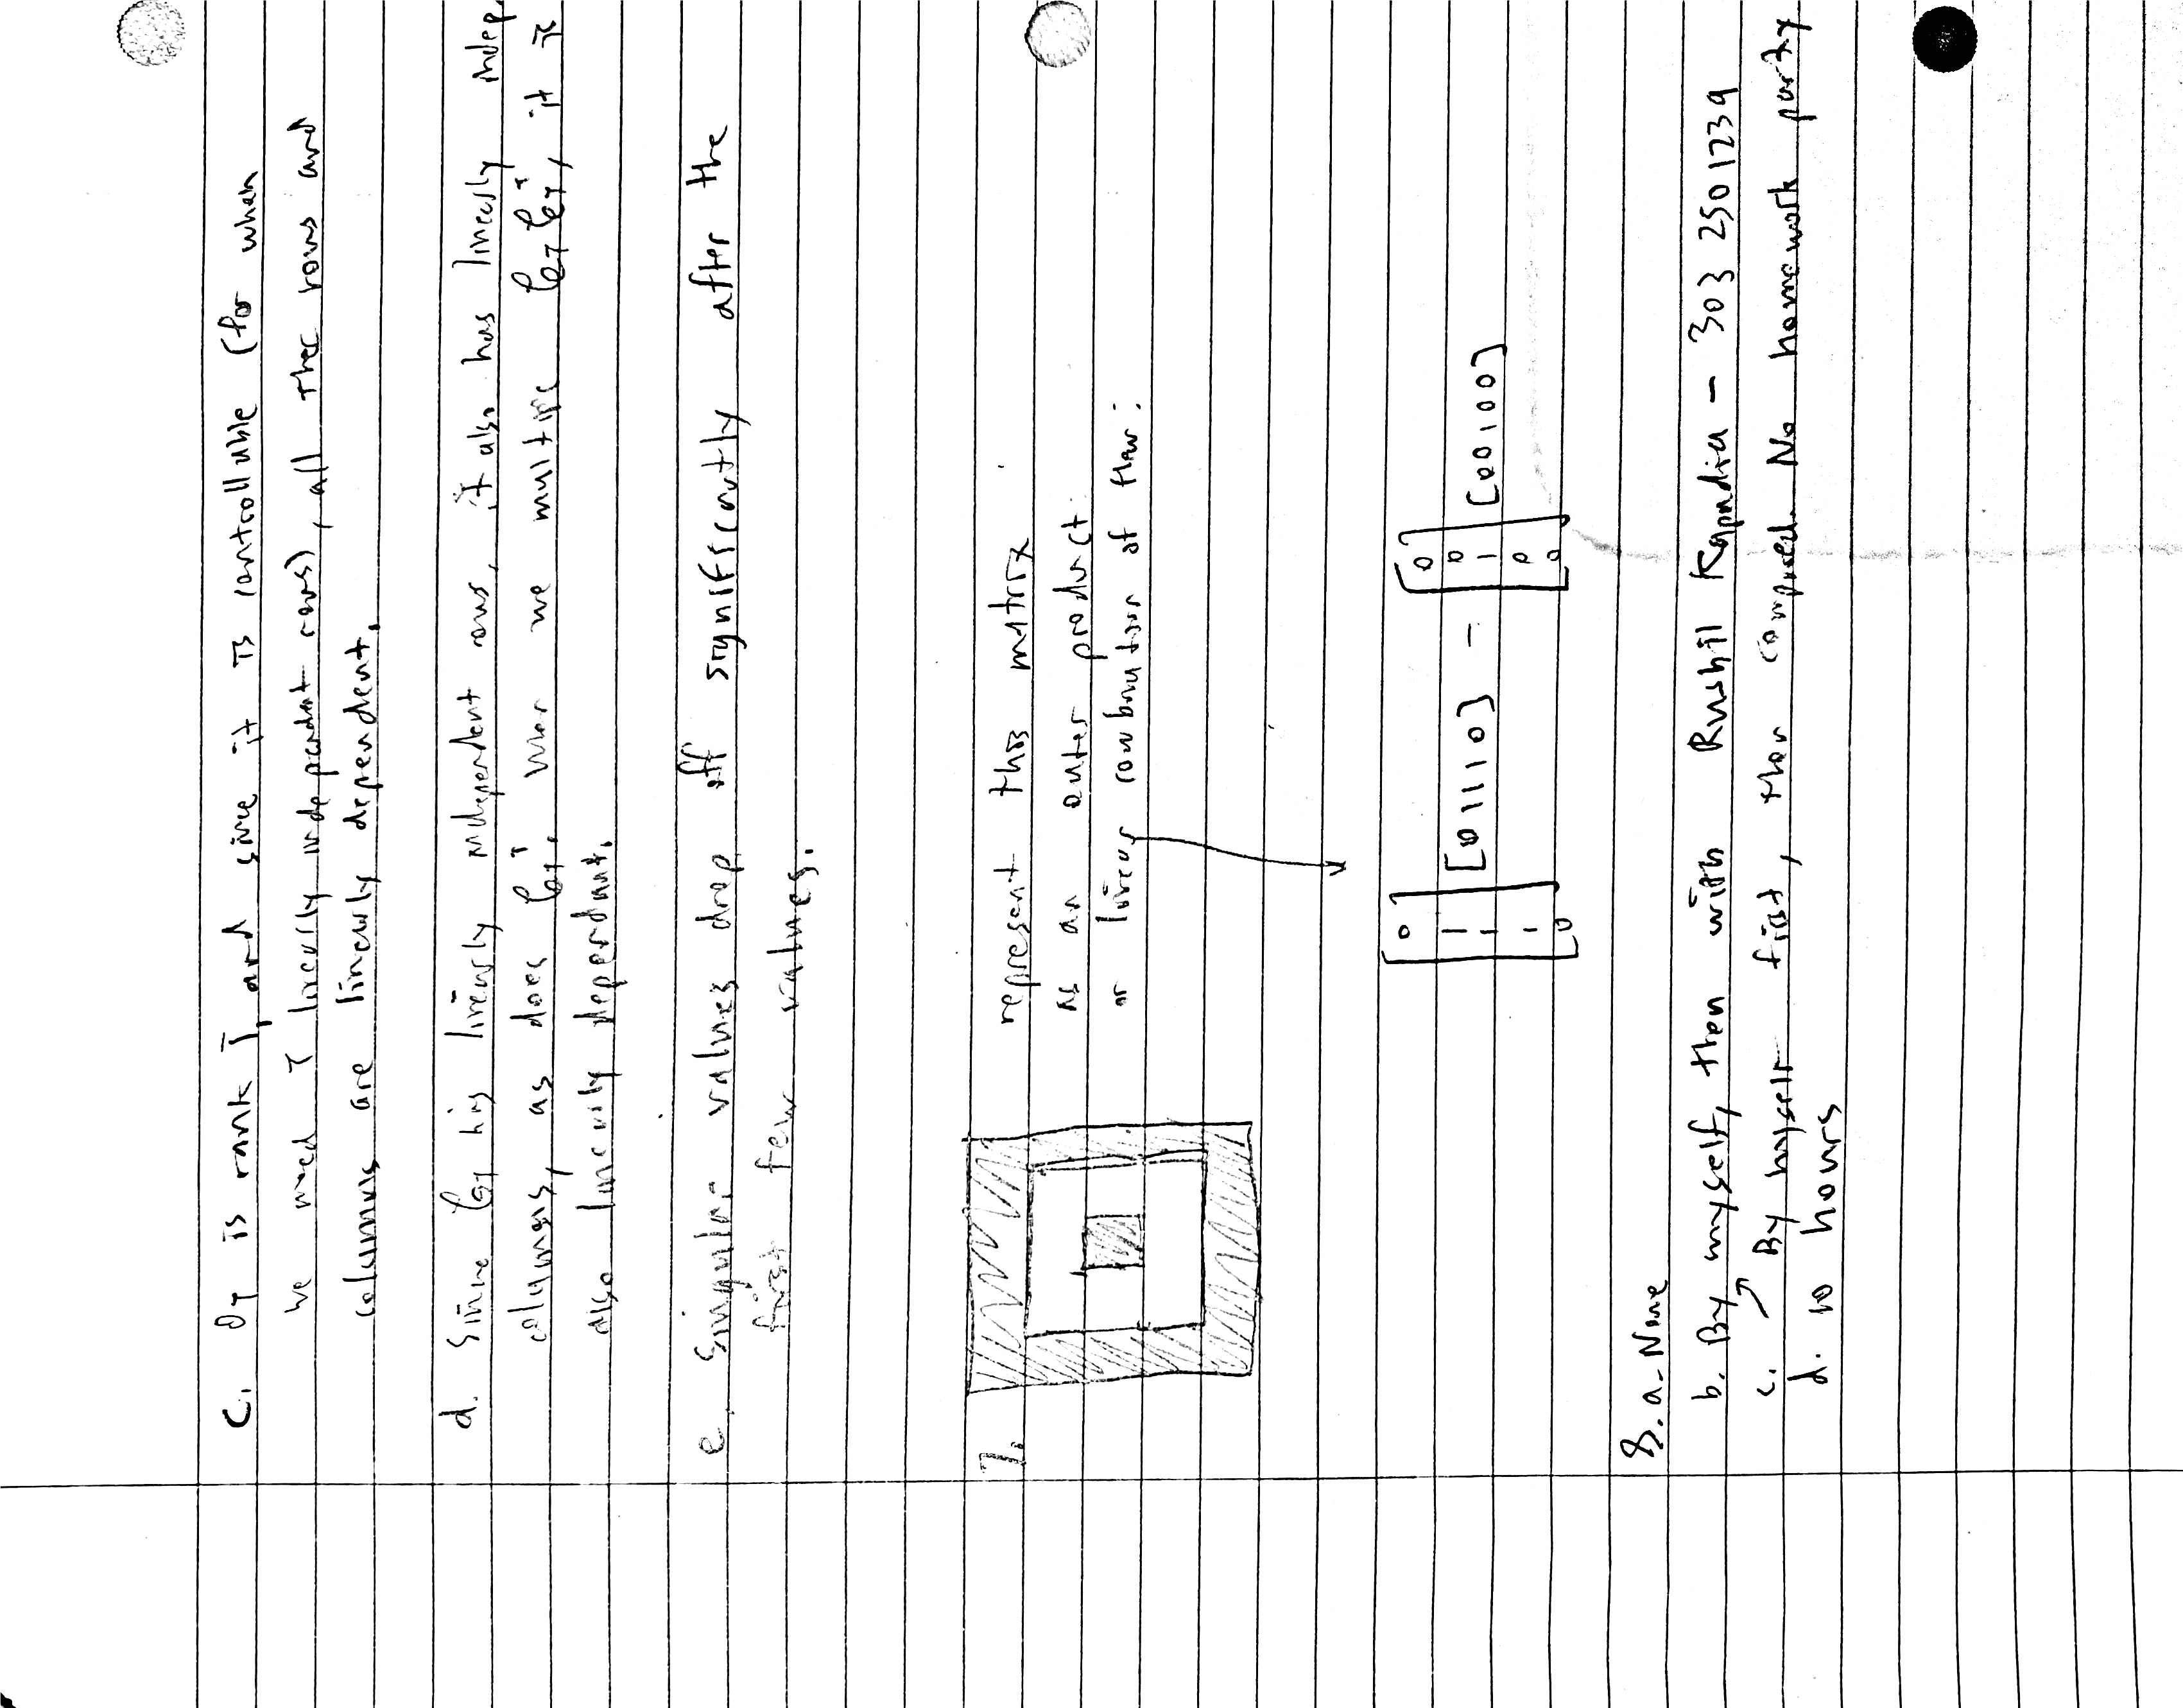 c. OT is rank T, and since it is controllable (for when
we need T linearly independent rows), all the rows and
columns are linearly dependent.
d. Since CT has linearly independent rows, it also has linearly indep.
columns, as does CT^T. When we CT CT^T, it is
also linearly dependant.
e. Singular values drop off significantly after the
first few values.
7.
represent this matrix
as an outer product
or linear combination of
[0 1 1 1 0] [0 1 1 1 0] - [0 0 1 0 0] [0 0 1 0 0]
8. a - None
b. By myself, then with Rushil Kapadia - 303 2501239
c. By myself first, then compared. No homework party
d. 10 hours